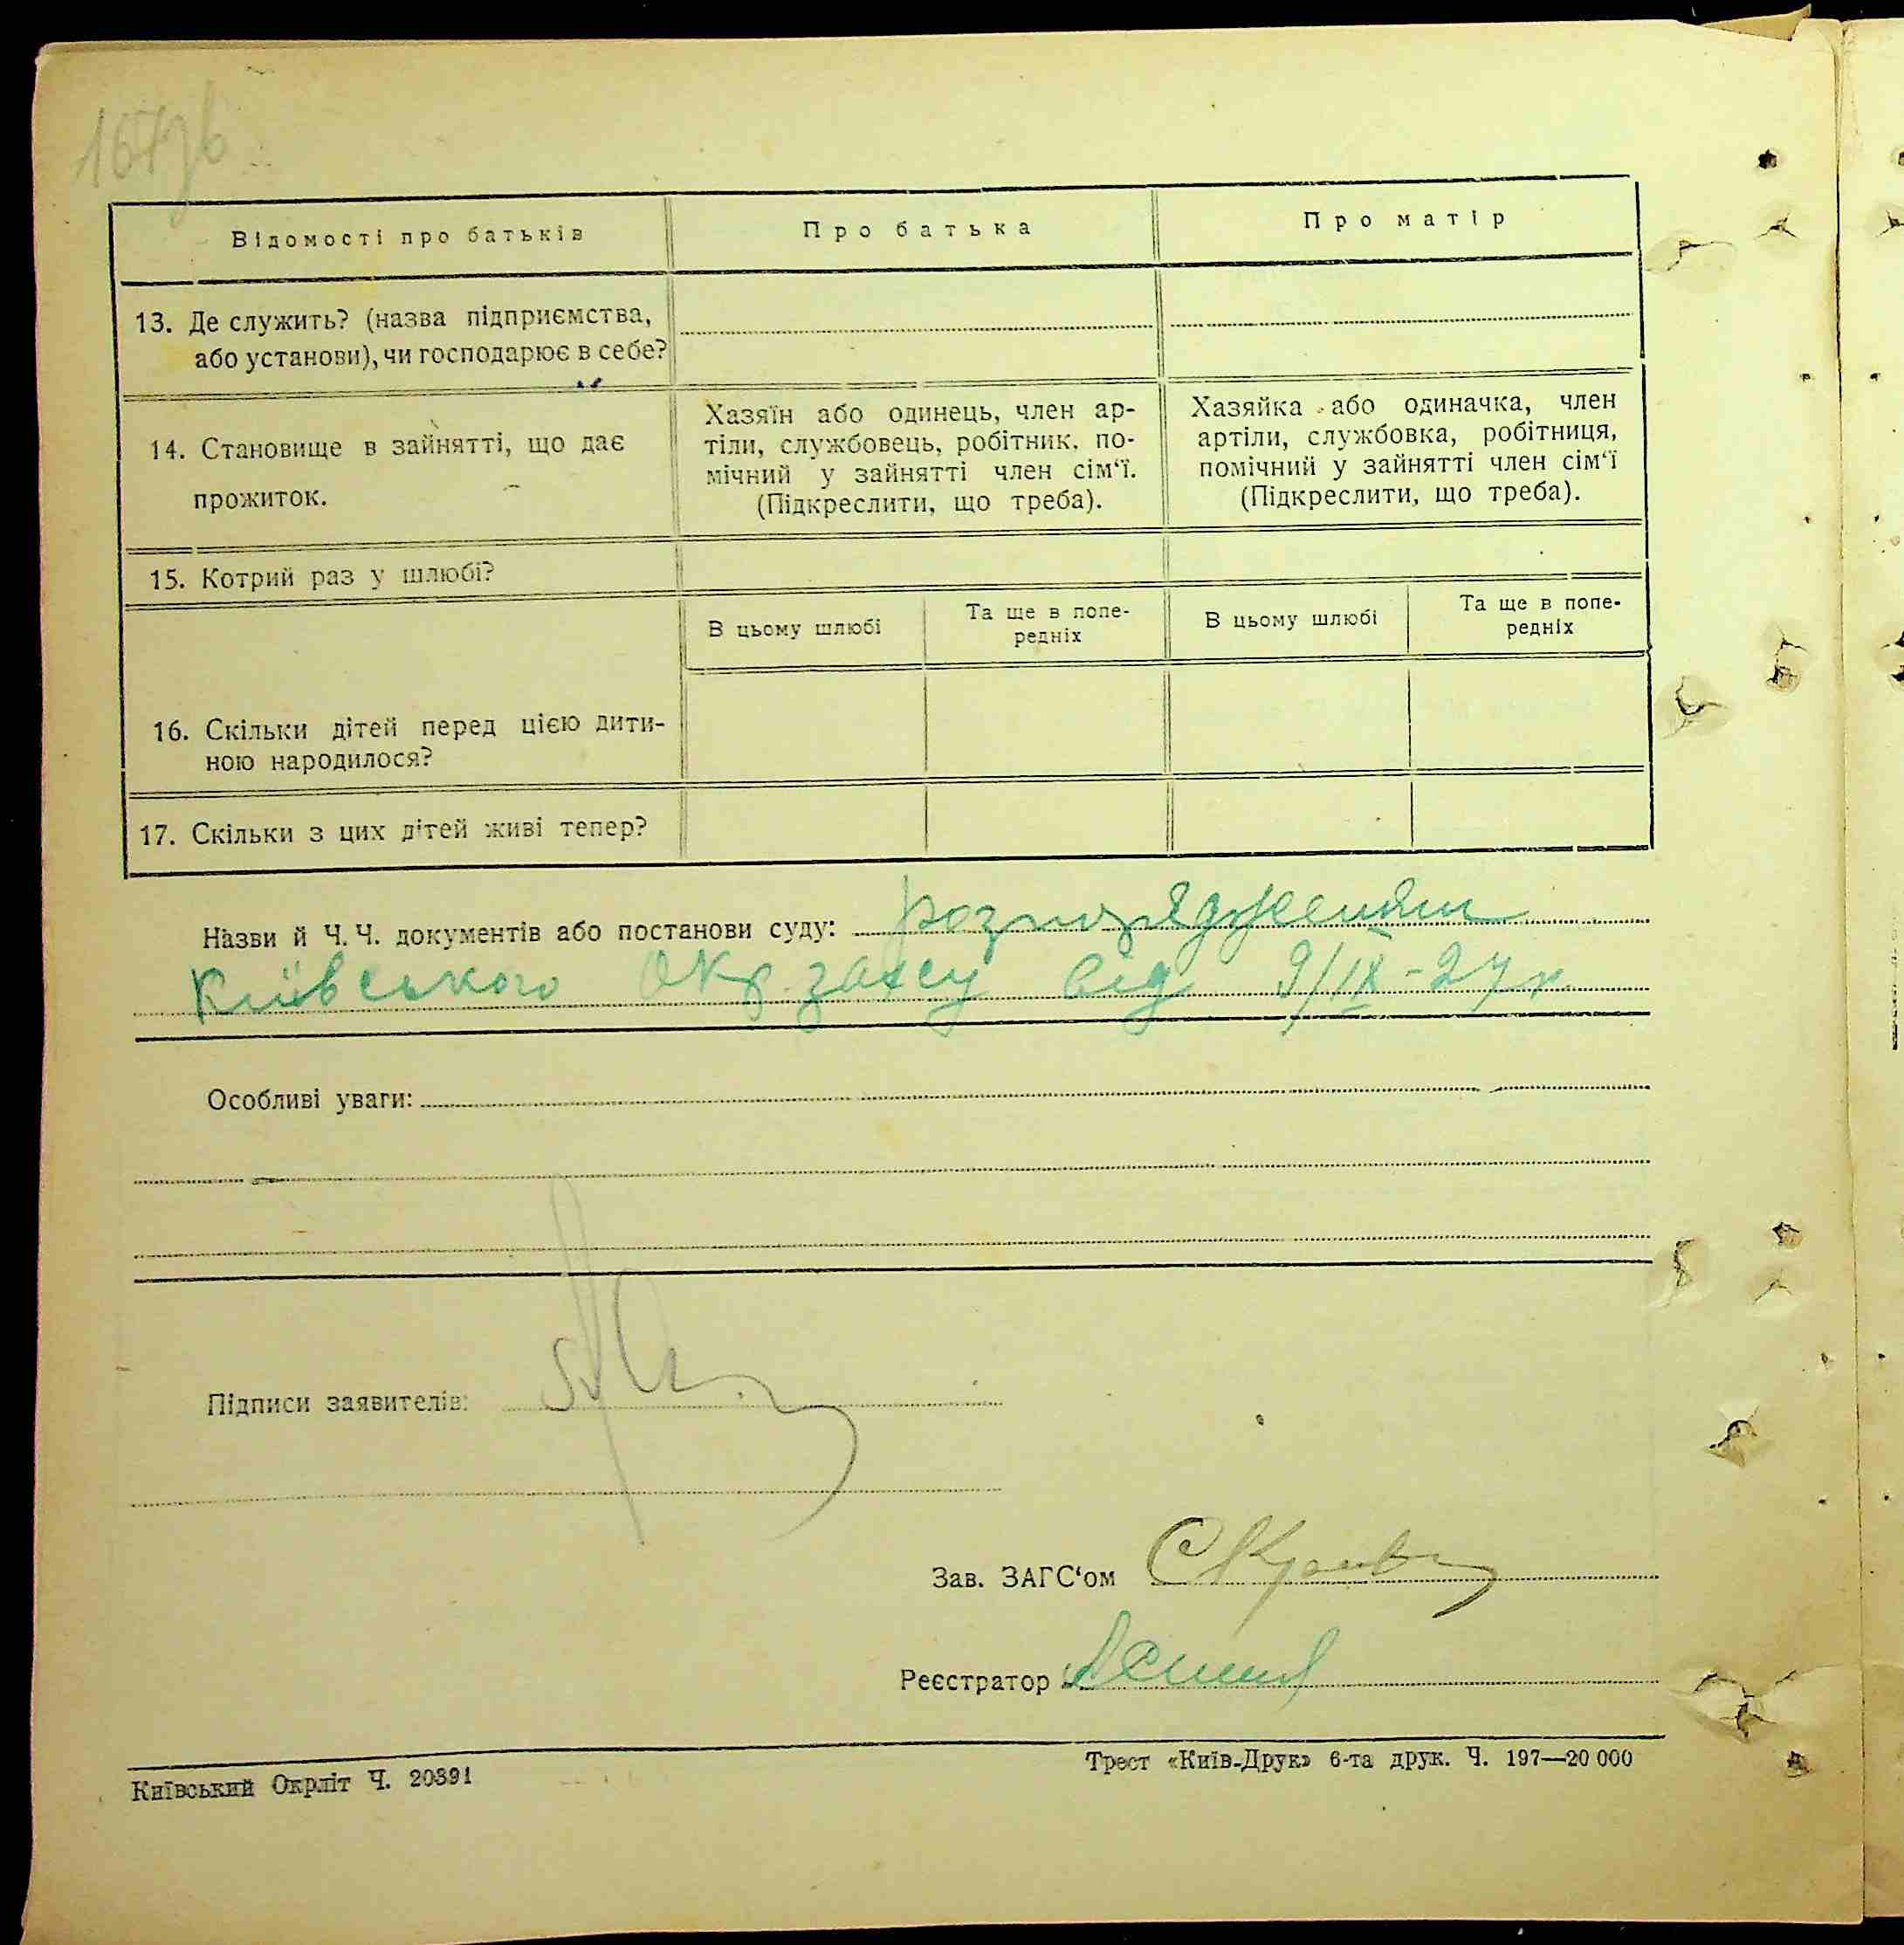 Відомості про батьків
Про батька
Про матір
13. Де служить? (назва підприємства,
або установи), чи господарює в себе?
14. Становище в зайнятті, що дає
прожиток.
Хазяїн або одинець, член ар-
тіли, службовець, робітник. по-
мічний у зайнятті член сім‘ї.
(Підкреслити, що треба).
Хазяйка або одиначка, член
артіли, службовка, робітниця,
помічний у зайнятті член сім‘ї
(Підкреслити, що треба).
15. Котрий раз у шлюбі?
В цьому шлюбі
Та ще в попе-
редніх
В цьому шлюбі
Та ще в попе-
редніх
16. Скільки дітей перед цією дити-
ною народилося?
17. Скільки з цих дітей живі тепер?
Назви й Ч. Ч. документів або постанови суду: розпорядження
Київського Окр. загсу від 9/IX-27 р.
Особливі уваги:
Підписи заявителів:
Зав. ЗАГС‘ом
Реєстратор
Київський Окрліт Ч. 20391
Трест «Київ-Друк» 6-та друк. Ч. 197—20 000